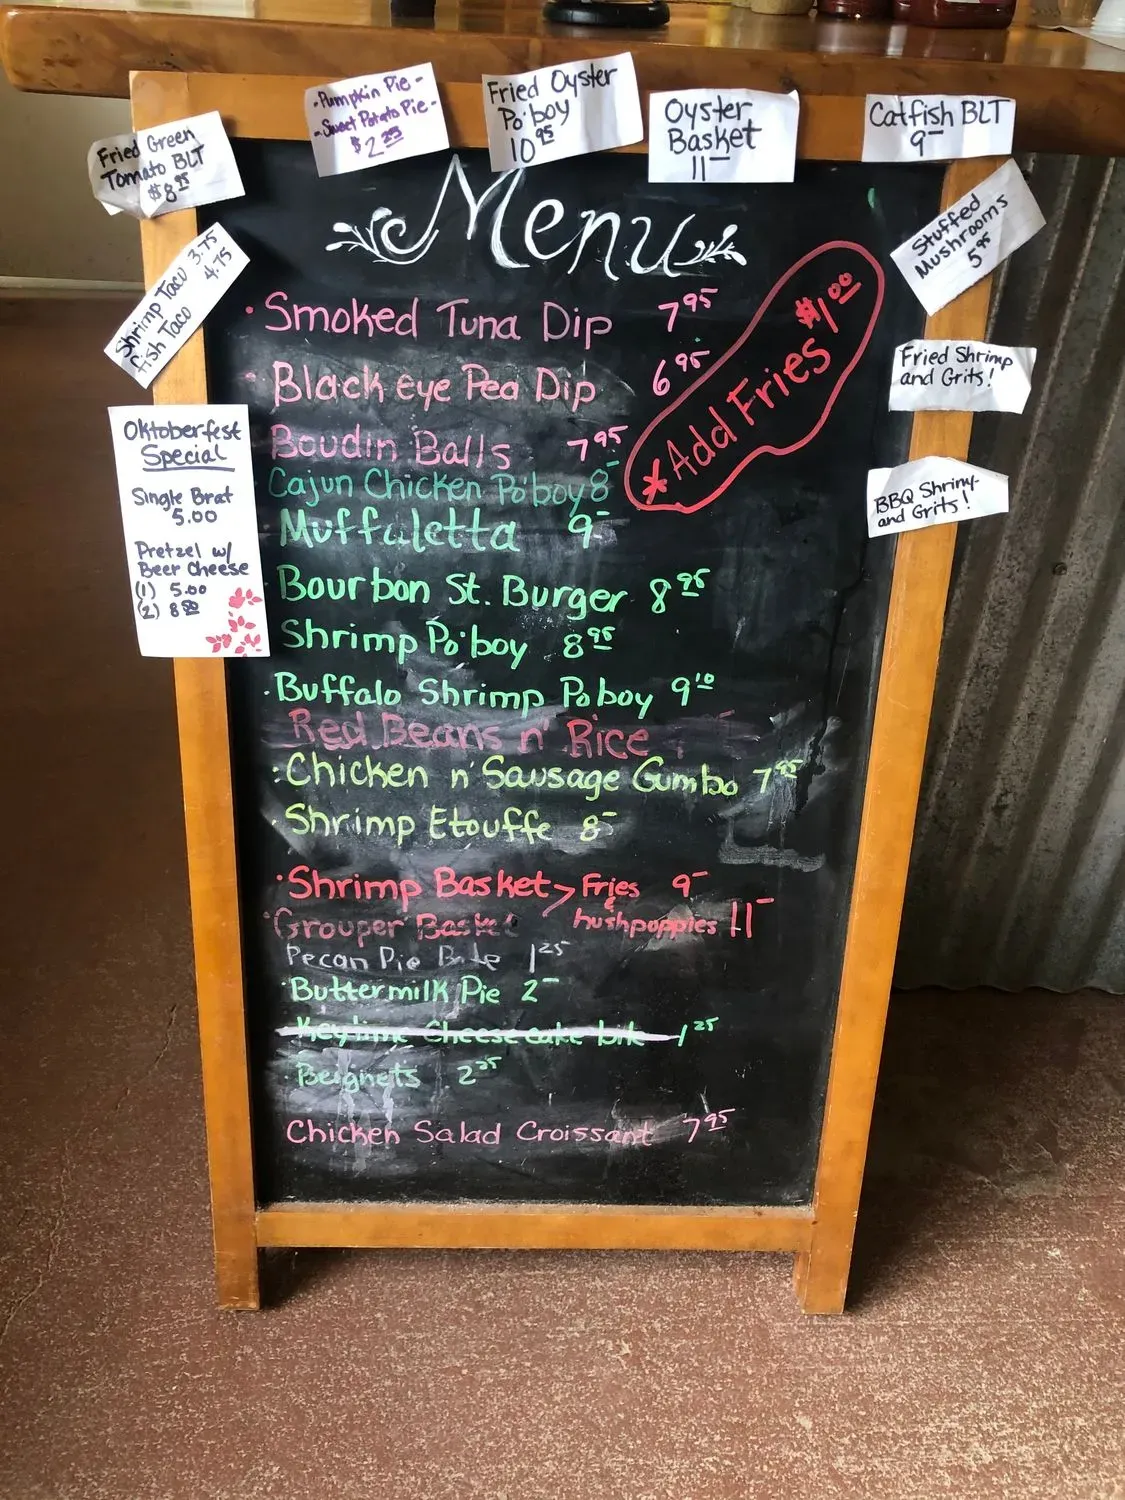 -Pumpkin Pie-
-Sweet Potato Pie-
$2.25
Fried Oyster
Po'boy
10 95
Oyster
Basket
11-
Catfish BLT
9-
Fried Green
Tomato BLT
$8 95
Stuffed
Mushrooms
5 95
Shrimp Taco 3.75
Fish Taco 4.75
Fried Shrimp
and Grits!
BBQ Shrimp
and Grits!
Oktoberfest
Special
Single Brat
5.00
Pretzel w/
Beer Cheese
(1) 5.00
(2) 8 50
Menu
· Smoked Tuna Dip 7 95
· Black eye Pea Dip 6 95
Boudin Balls 7 95
* Add Fries $1.00
Cajun Chicken Po'boy 8-
Muffuletta 9-
Bourbon St. Burger 8 95
Shrimp Po'boy 8 95
· Buffalo Shrimp Po boy 9 10
Red Beans n' Rice
· Chicken n' Sausage Gumbo 7 95
· Shrimp Etouffe 8-
· Shrimp Basket > Fries 9-
&
· Grouper Basket hushpoppies 11-
Pecan Pie Bite 1 25
· Buttermilk Pie 2-
Keylime Cheesecake bite 1 25
· Beignets 2 25
Chicken Salad Croissant 7 95